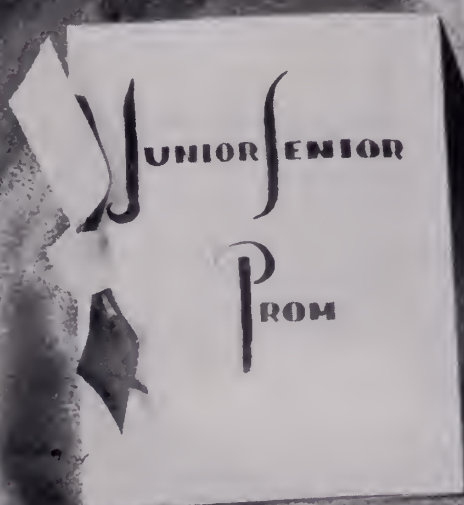 JUNIOR SENIOR
PROM